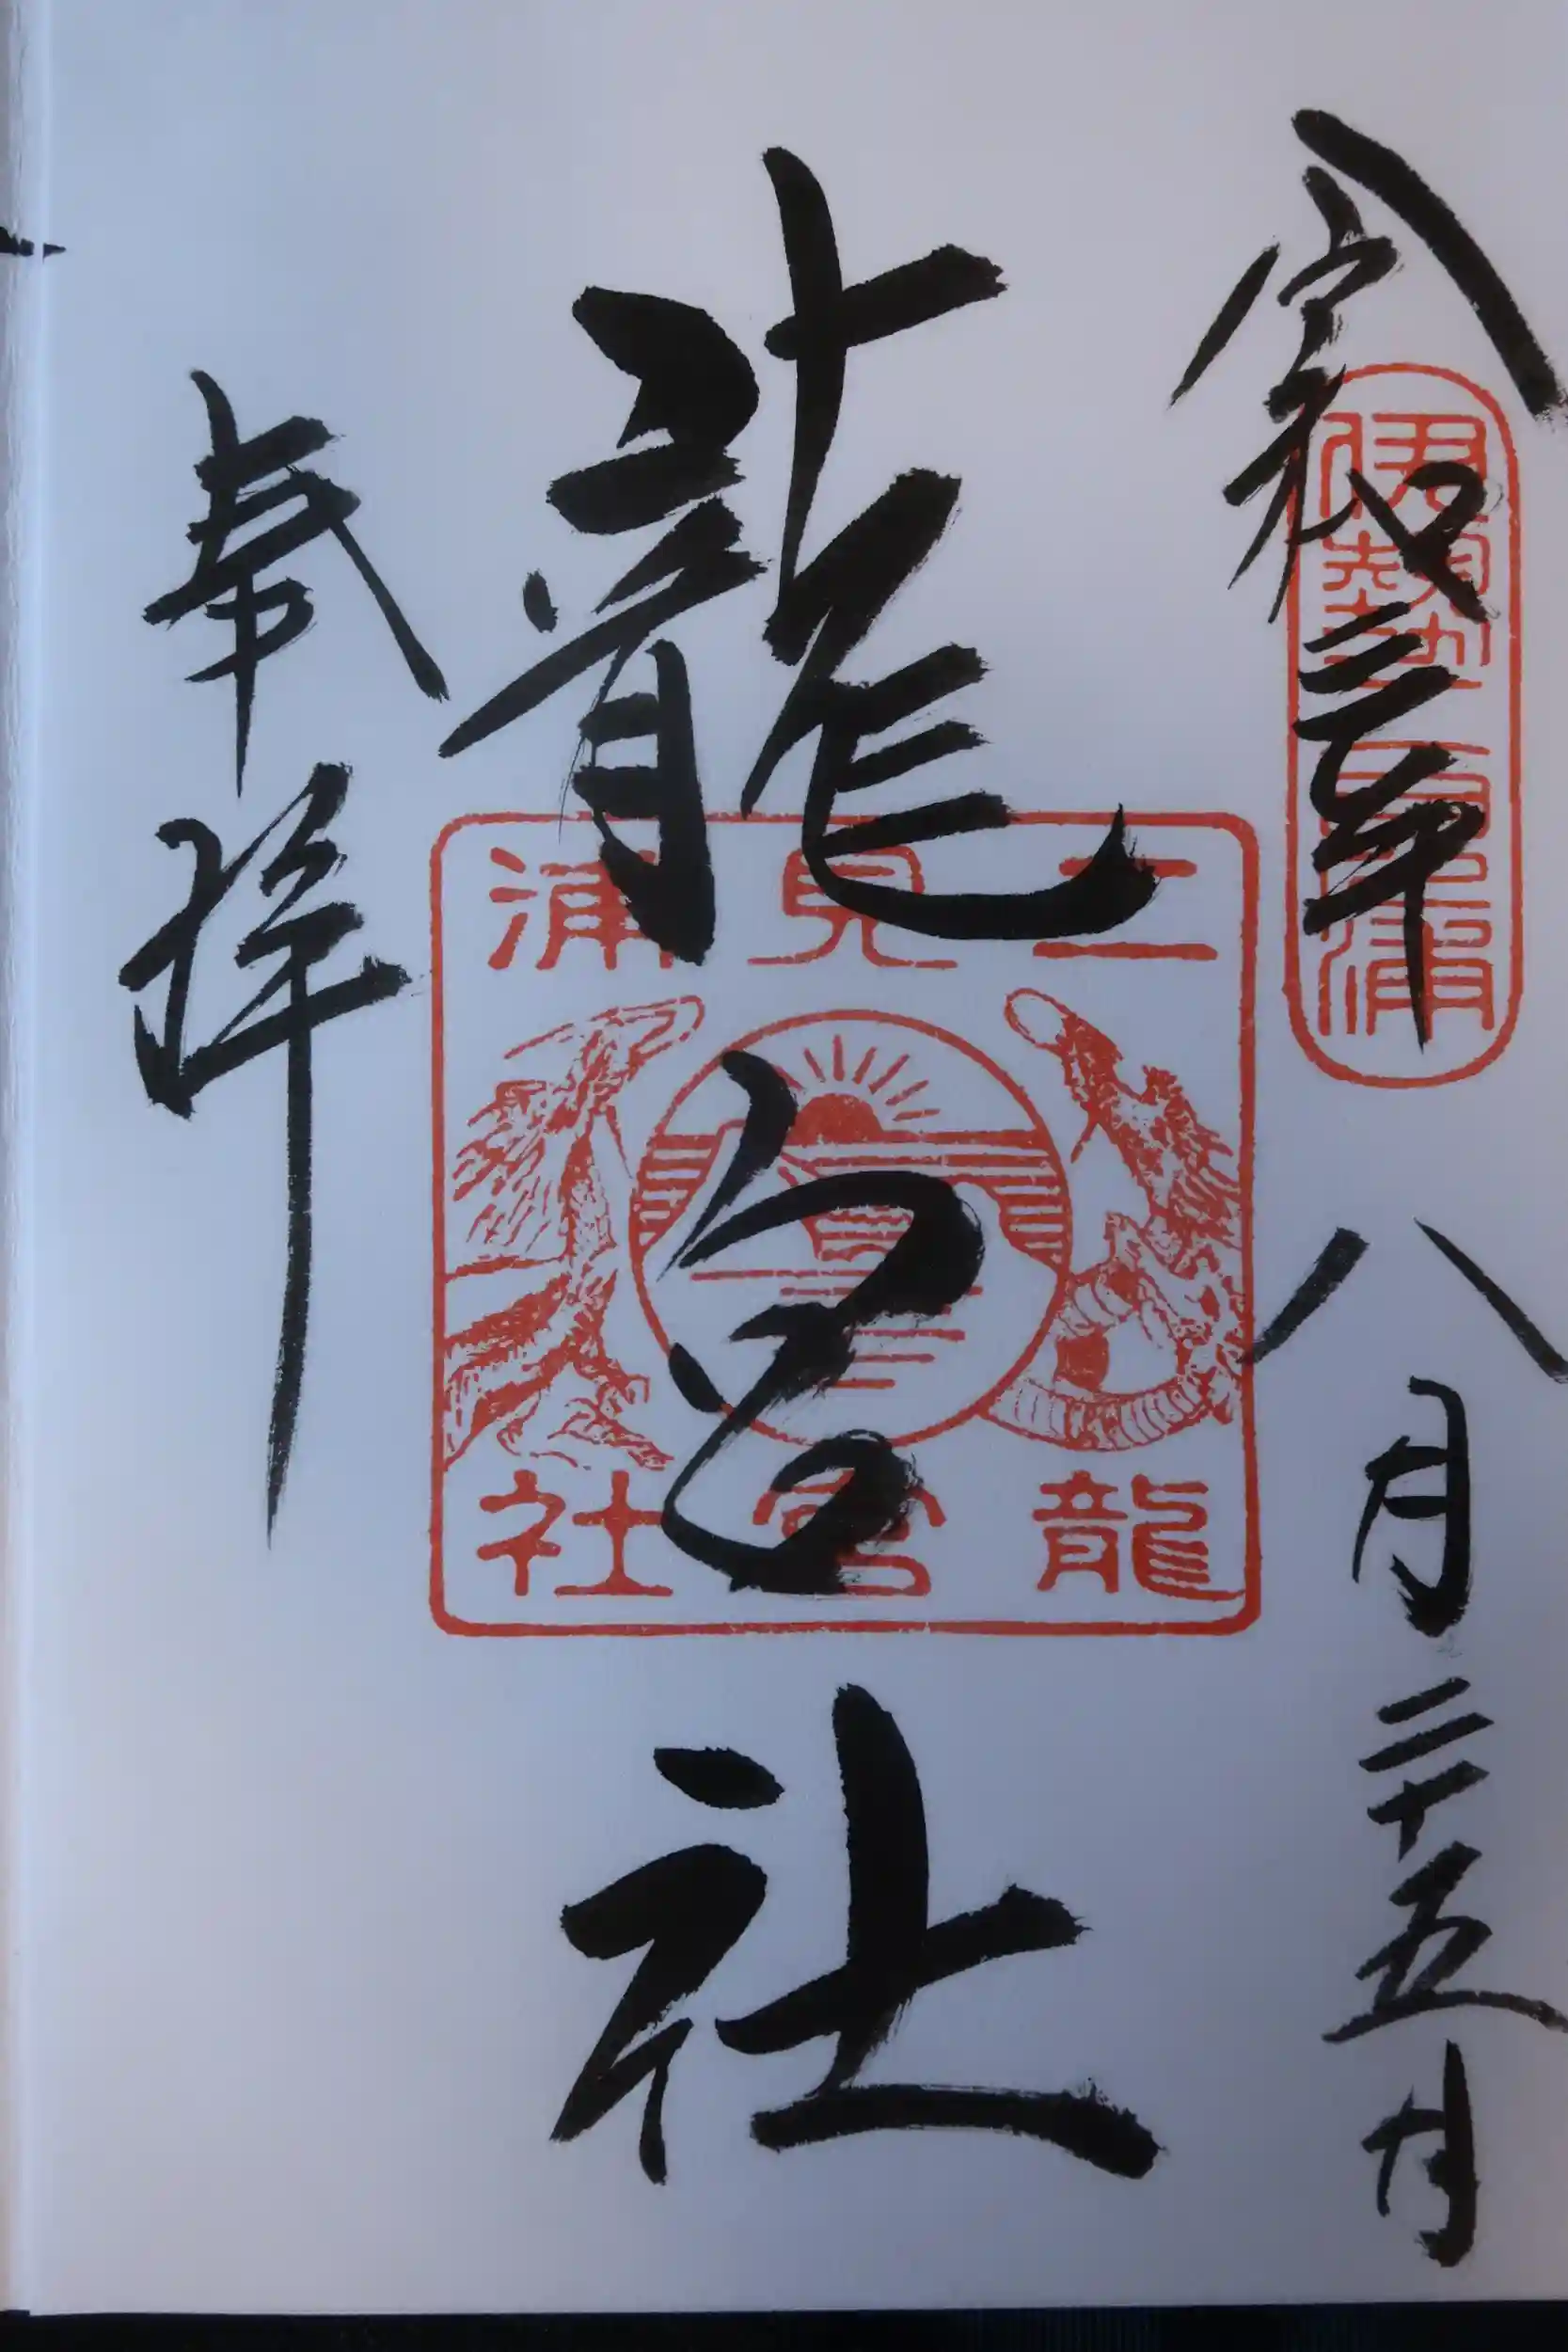 令和三年
八月二十五日
伊勢二見浦
龍宮社
二見浦
龍宮社
奉拝